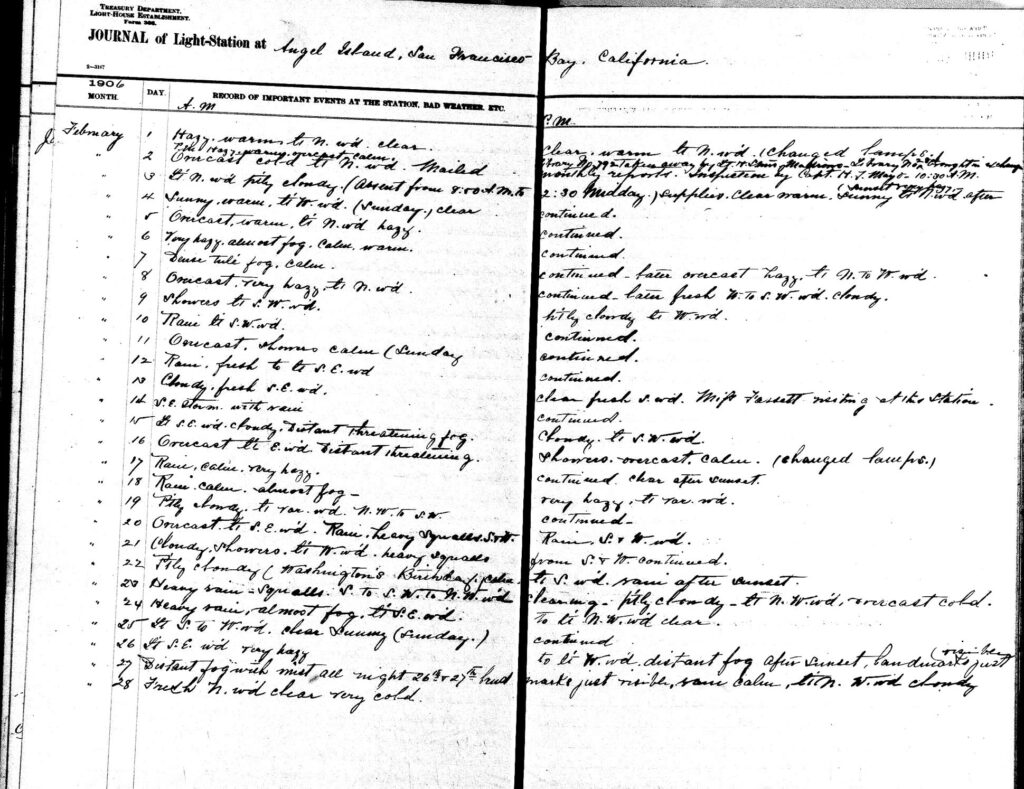 TREASURY DEPARTMENT.
LIGHT-HOUSE ESTABLISHMENT.
Form 306.
JOURNAL of Light-Station at Angel Island, San Francisco Bay, California.
2—3167
1906
MONTH. DAY. RECORD OF IMPORTANT EVENTS AT THE STATION, BAD WEATHER, ETC.
A.M. P.M.
February 1 Hazy, warm, lt N. w'd. clear. Clear, warm lt N. w'd. (Changed lamps.)
P.M. Hazy warm calm. Library No. taken away by
" 2 Overcast cold lt N. w'd. Mailed monthly reports. Inspection by Capt. H. T. Mayo - 10:30 A.M.
" 3 Lt N. w'd ptly cloudy. (Absent from 8:00 A.M. to 2:30 Midday.) Supplies. Clear warm, Sunny lt N. w'd after
" 4 Sunny, warm, lt W. w'd. (Sunday.) clear continued.
" 5 Overcast, warm, lt N. w'd hazy. continued.
" 6 Very hazy, almost fog. Calm, warm. continued.
" 7 Dense tule fog. calm. continued later overcast hazy, lt N. to W. w'd.
" 8 Overcast, very hazy, lt N. w'd. continued - later fresh W. to S. W. w'd. cloudy.
" 9 Showers lt S. W. w'd. ptly cloudy lt W. w'd.
" 10 Rain lt S. W. w'd. continued.
" 11 Overcast, showers calm (Sunday continued.
" 12 Rain, fresh to lt S. E. w'd continued.
" 13 Cloudy, fresh S. E. w'd. clear fresh S. w'd. Miss Fassett visiting at this Station.
" 14 S. E. storm with rain continued.
" 15 Lt S. E. w'd. cloudy. Distant threatening fog. Cloudy, lt S. W. w'd.
" 16 Overcast lt E. w'd Distant threatening. Showers - overcast, calm. (Changed lamps.)
" 17 Rain, calm, very hazy. continued clear after sunset.
" 18 Rain calm, almost fog - very hazy, lt var. w'd.
" 19 Ptly cloudy, lt var. w'd. N. W. to S. W. continued -
" 20 Overcast lt S. E. w'd. Rain, heavy squalls S. & W. Rain, S. & W. w'd.
" 21 Cloudy, showers, lt W. w'd. heavy squalls from S. & W. continued.
" 22 Ptly cloudy (Washington's Birthday) calm. lt S. w'd. rain after sunset.
" 23 Heavy rain - squalls. S. to S. W. to N. W. w'd clearing - ptly cloudy - lt N. W. w'd, overcast cold.
" 24 Heavy rain, almost fog, lt S. E. w'd. to lt N. W. w'd clear.
" 25 Lt S. to W. w'd. clear Sunny (Sunday.) continued
" 26 Lt S. E. w'd very hazy to lt W. w'd. distant fog after sunset, landmarks just (visible)
" 27 Distant fog with mist all night 26th & 27th land marks just visible, rain calm, lt N. W. w'd cloudy
" 28 Fresh N. w'd clear very cold.